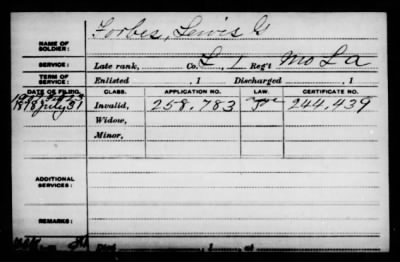 Forbes, Lewis G
NAME OF SOLDIER:
SERVICE: Late rank, Co. L, 1 Reg't Mo L a
TERM OF SERVICE: Enlisted , 1 Discharged , 1
DATE OF FILING. CLASS. APPLICATION NO. LAW. CERTIFICATE NO.
1878 July 31 Invalid, 258,783 244,439
Widow,
Minor,
ADDITIONAL SERVICES:
REMARKS:
Died , 1 , at